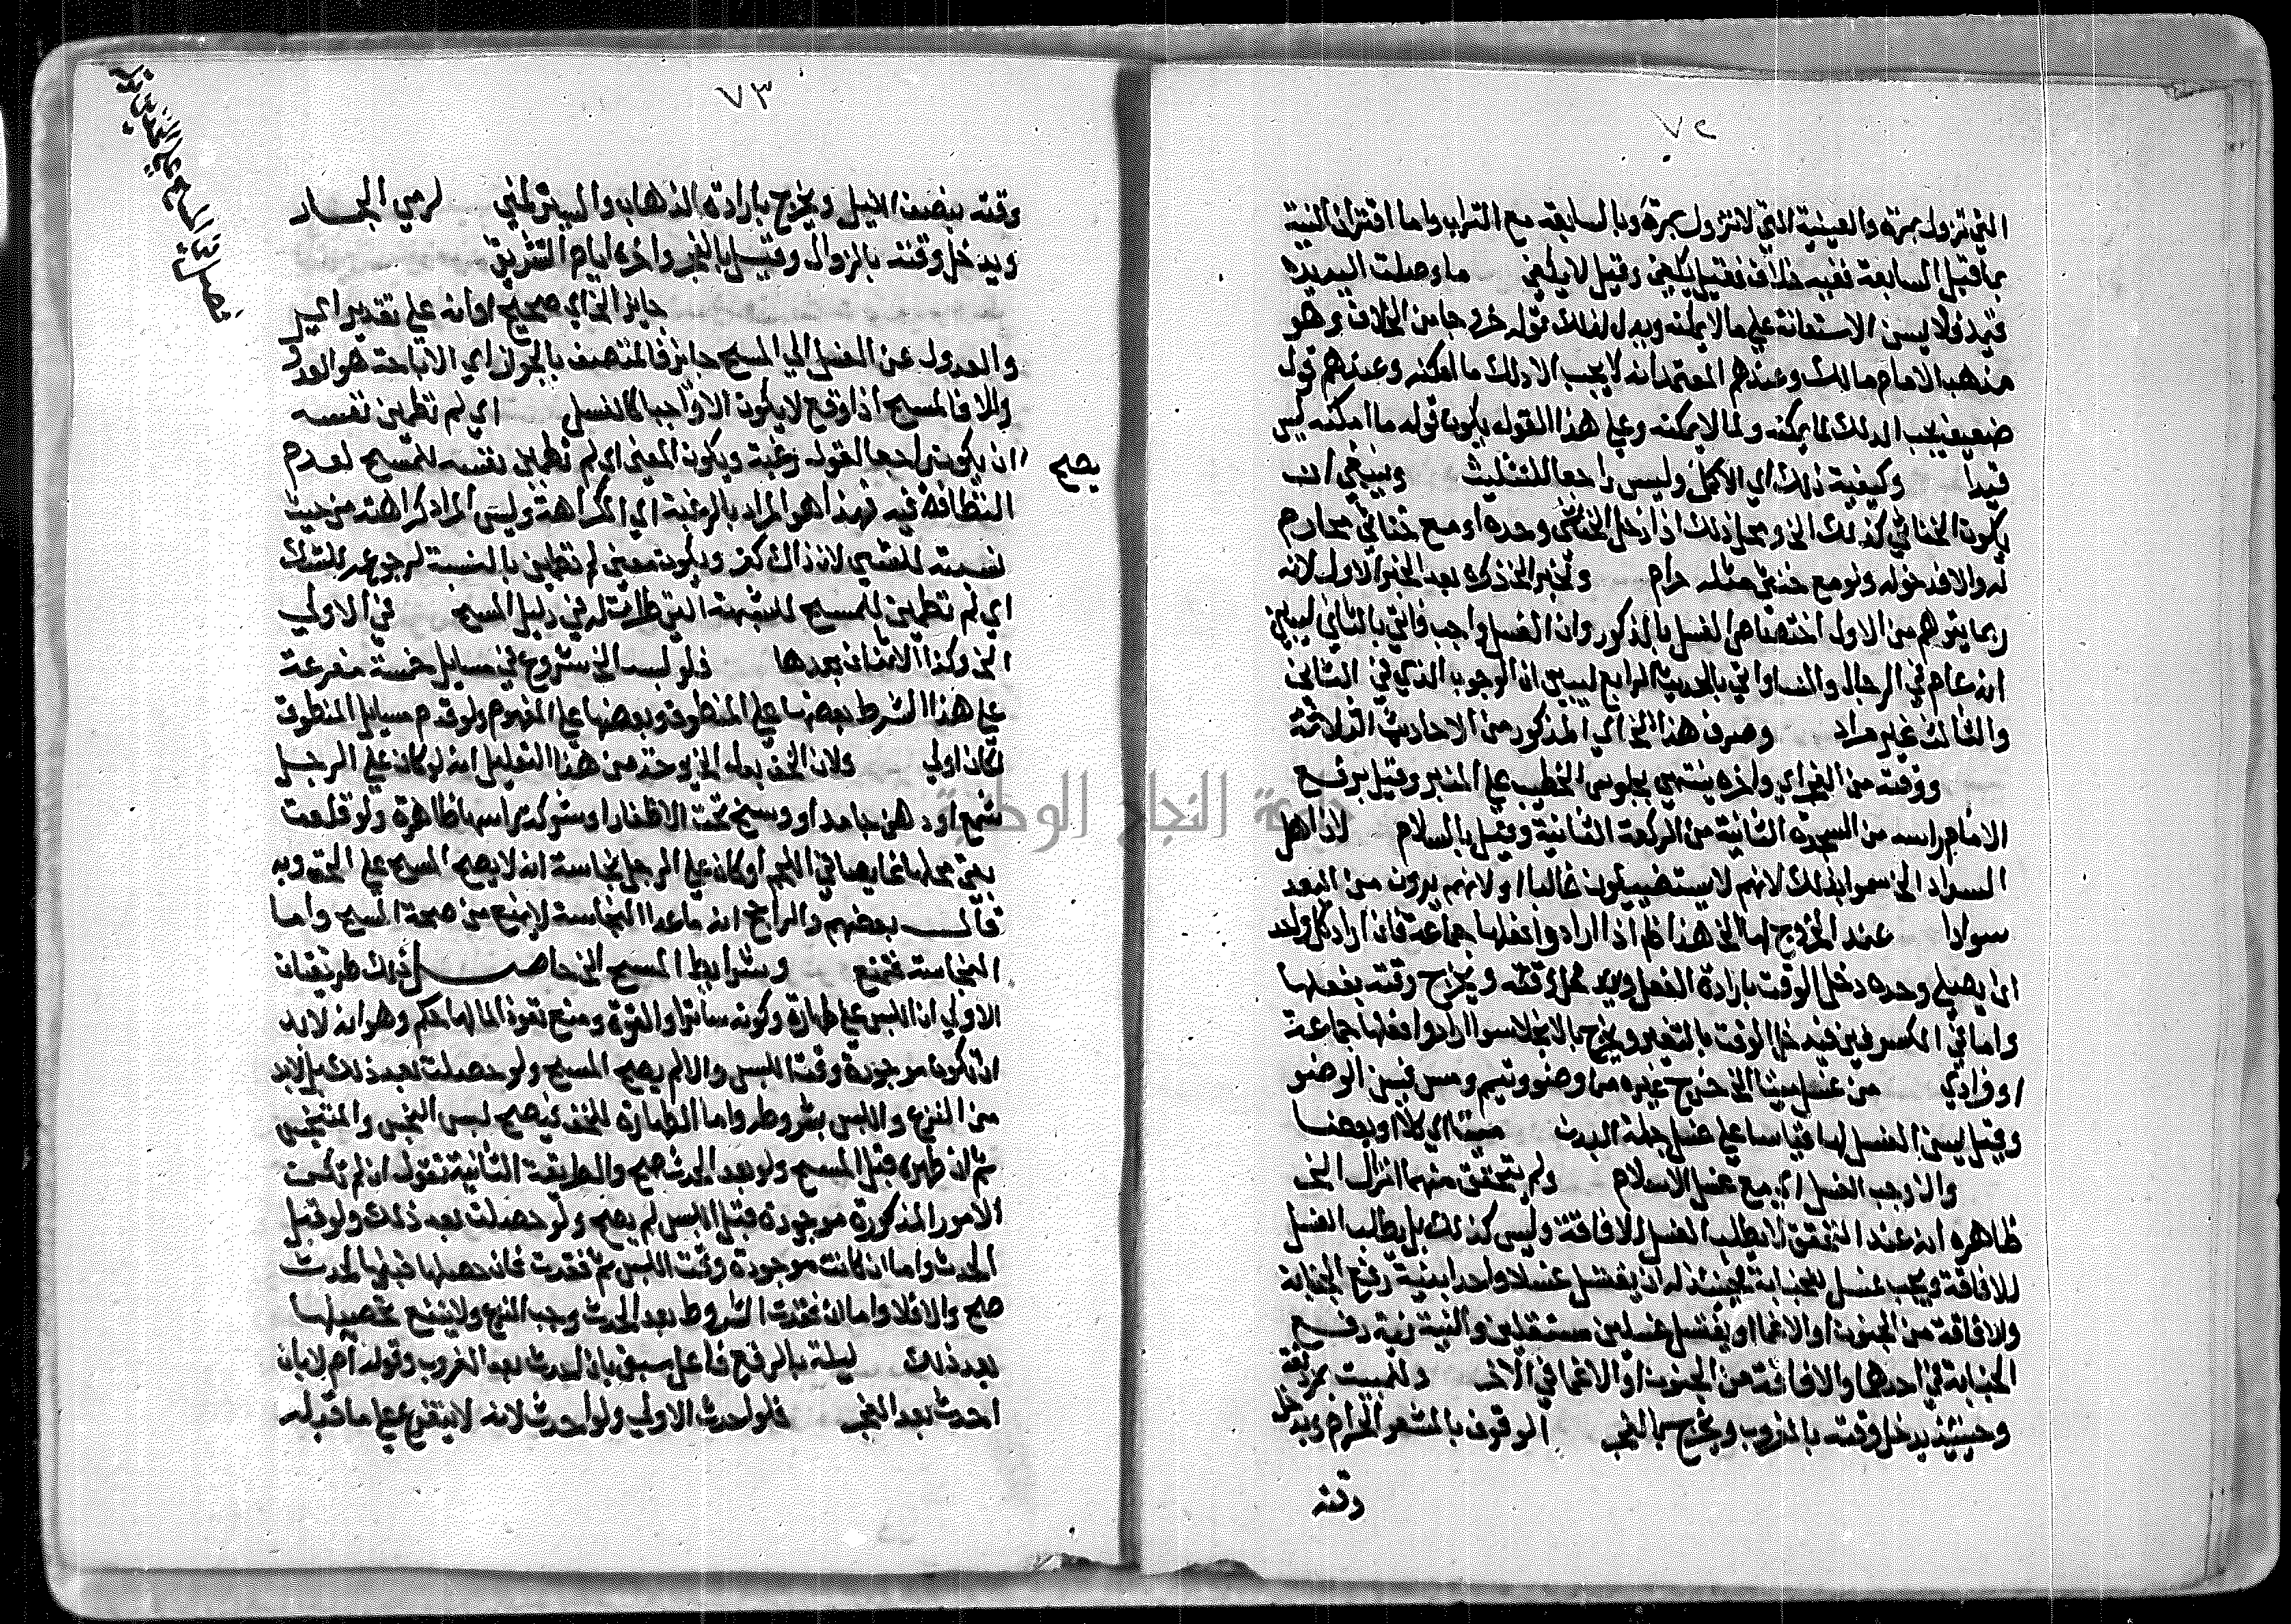 ٧٢
التي تزول بمرة والعينية التي لا تزول بمرة وبالسابعة مع التراب واما اقتران النية
بما قبل السابعة ففيه خلاف فقيل يكفي وقيل لا يكفي ما وصلت اليه يده
قيد فلا يسن الاستعانة على ما لا يمكنه ويدل لذلك قوله خروجا من الخلاف وهو
مذهب الامام مالك وعندهم المعتمد انه لا يجب الا دلك ما امكنه وعندهم قول
ضعيف يجب الدلك لما يمكنه ولما لا يمكنه وعلى هذا القول يكون قوله ما امكنه ليس
قيدا وكيفية ذلك اي الاكمل وليس راجعا للتثليث وينبغي ان
يكون الخناثي كذلك الخ ومحل ذلك اذا دخل الخنثى وحده او مع خناثي محارم
له والا فدخوله ولو مع خنثى مثله حرام ولخبر الخ ذكره بعد الخبر الاول لانه
ربما يتوهم من الاول اختصاص الغسل بالذكور وان الغسل واجب فاتي بالثاني ليبين
انه عام في الرجال والنساء واتي بالحديث الرابع ليبين ان الوجوب الذي في الثاني
والثالث غير مراد وصرف هذا الخ اي المذكور من الاحاديث الثلاثة
ووقته من الفجر اي واخره ينتهي بجلوس الخطيب على المنبر وقيل برفع
الامام راسه من السجدة الثانية من الركعة الثانية وقيل بالسلام لاذا هل
السواد الخ سموا بذلك لانهم لا يستضيئون غالبا او لانهم يرون من البعد
سوادا عند الخروج لها الخ هذا ظ اذا ارادوا فعلها جماعة فان اراد كل واحد
ان يصلي وحده دخل الوقت بارادة الفعل ويدخل وقته ويخرج وقته بفعلها
واما في الكسوفين فيدخل الوقت بالتغير ويخرج بالانجلا سوا ارادوا فعلها جماعة
او فرادي من غسل ميتا الخ خرج غيره من وضو وتيمم ومس فيسن الوضو
وقيل يسن الغسل لها قياسا على غسل جملة البدن ميتا اي كلا او بعضا
والا وجب الغسل اي مع غسل الاسلام ولم يتحقق منهما انزال الخ
ظاهره انه عند التحقق لا يطلب الغسل للافاقة وليس كذلك بل يطلب الغسل
للافاقة ويجب غسل للجنابة فحينئذ له ان يغتسل غسلا واحدا بنية رفع الجنابة
والافاقة من الجنون او الاغما او يغتسل غسلين مستقلين والنية نية رفع
الجنابة في احدهما والافاقة من الجنون او الاغما في الاخر وللمبيت بمزدلفة
وحينئذ يدخل وقته بالغروب ويخرج بالفجر الوقوف بالمشعر الحرام ويدخل
وقته
٧٣
وقته بنصف الليل ويخرج بارادة الذهاب والسير لمنى لرمي الجمار
ويدخل وقته بالزوال وقيل بالفجر واخره ايام التشريق
فصل في المسح على الخفين
جايز الخ اي صحيح او انه على تقدير اي
والعدول عن الغسل الي المسح جايز فالمتصف بالجواز اي الاباحة هو العدول
والا فالمسح اذا وقع لا يكون الا واجبا كالغسل اي لم تطمين نفسه
ان يكون راجعا لقوله رغبة ويكون المعني اي لم تطمين نفسه للمسح لعدم
يصح
النظافة فيه فهذا هو المراد بالرغبة اي الكراهة وليس المراد كراهته من حيث
نسبته للشي لان ذاك كفر ويكون معنى لم تطمين بالنسبة لرجوعه للشك
اي لم تطمين للمسح للشبهة التي طرات له في دليل المسح في الاولي
الخ وكذا الاثنان بعدها فلو لبسه الخ شروع في مسايل خمسة مفرعة
على هذا الشرط بعضها على المنطوق وبعضها على المفهوم ولو قدم مسايل المنطوق
لكان اولي ولان الخف بدله الخ يوخذ من هذا التعليل انه لو كان على الرجل
شمع او دهن جامد او وسخ تحت الاظفار او شوكة راسها ظاهرة ولو قلعت
بقي محلها غايصا في اللحم او كان على الرجل نجاسة انه لا يصح المسح على الخف وبه
قال بعضهم والراجح انه ما عدا النجاسة لا يمنع من صحة المسح واما
النجاسة فتمنع وشرايط المسح الخ حاصل ذلك طريقتان
الاولي ان اللبس على طهارة وكونه ساترا والقوة ومنع نفوذ الما لها حكم وهو انه لا بد
ان تكون موجودة وقت اللبس والا لم يصح المسح ولو حصلت بعد ذلك بل لا بد
من النزع واللبس بشروطه واما الطهارة للخف فيصح لبس النجس والمتنجس
ثم ان طهره قبل المسح ولو بعد الحدث صح والطريقة الثانية تقول ان لم تكن
الامور المذكورة موجودة قبل اللبس لم يصح ولو حصلت بعد ذلك ولو قبل
الحدث واما ان كانت موجودة وقت اللبس ثم فقدت فان حصلها قبل الحدث
صح والا فلا واما ان فقدت الشروط بعد الحدث وجب النزع ولا ينفع تحصيلها
بعد ذلك ليلة بالرفع فاعل سبق بان احدث بعد الغروب وقوله ام لا بان
احدث بعد الفجر فلو احدث الاولي ولو احدث لانه لا يتفرع على ما قبله
جامعة النجاح الوطنية